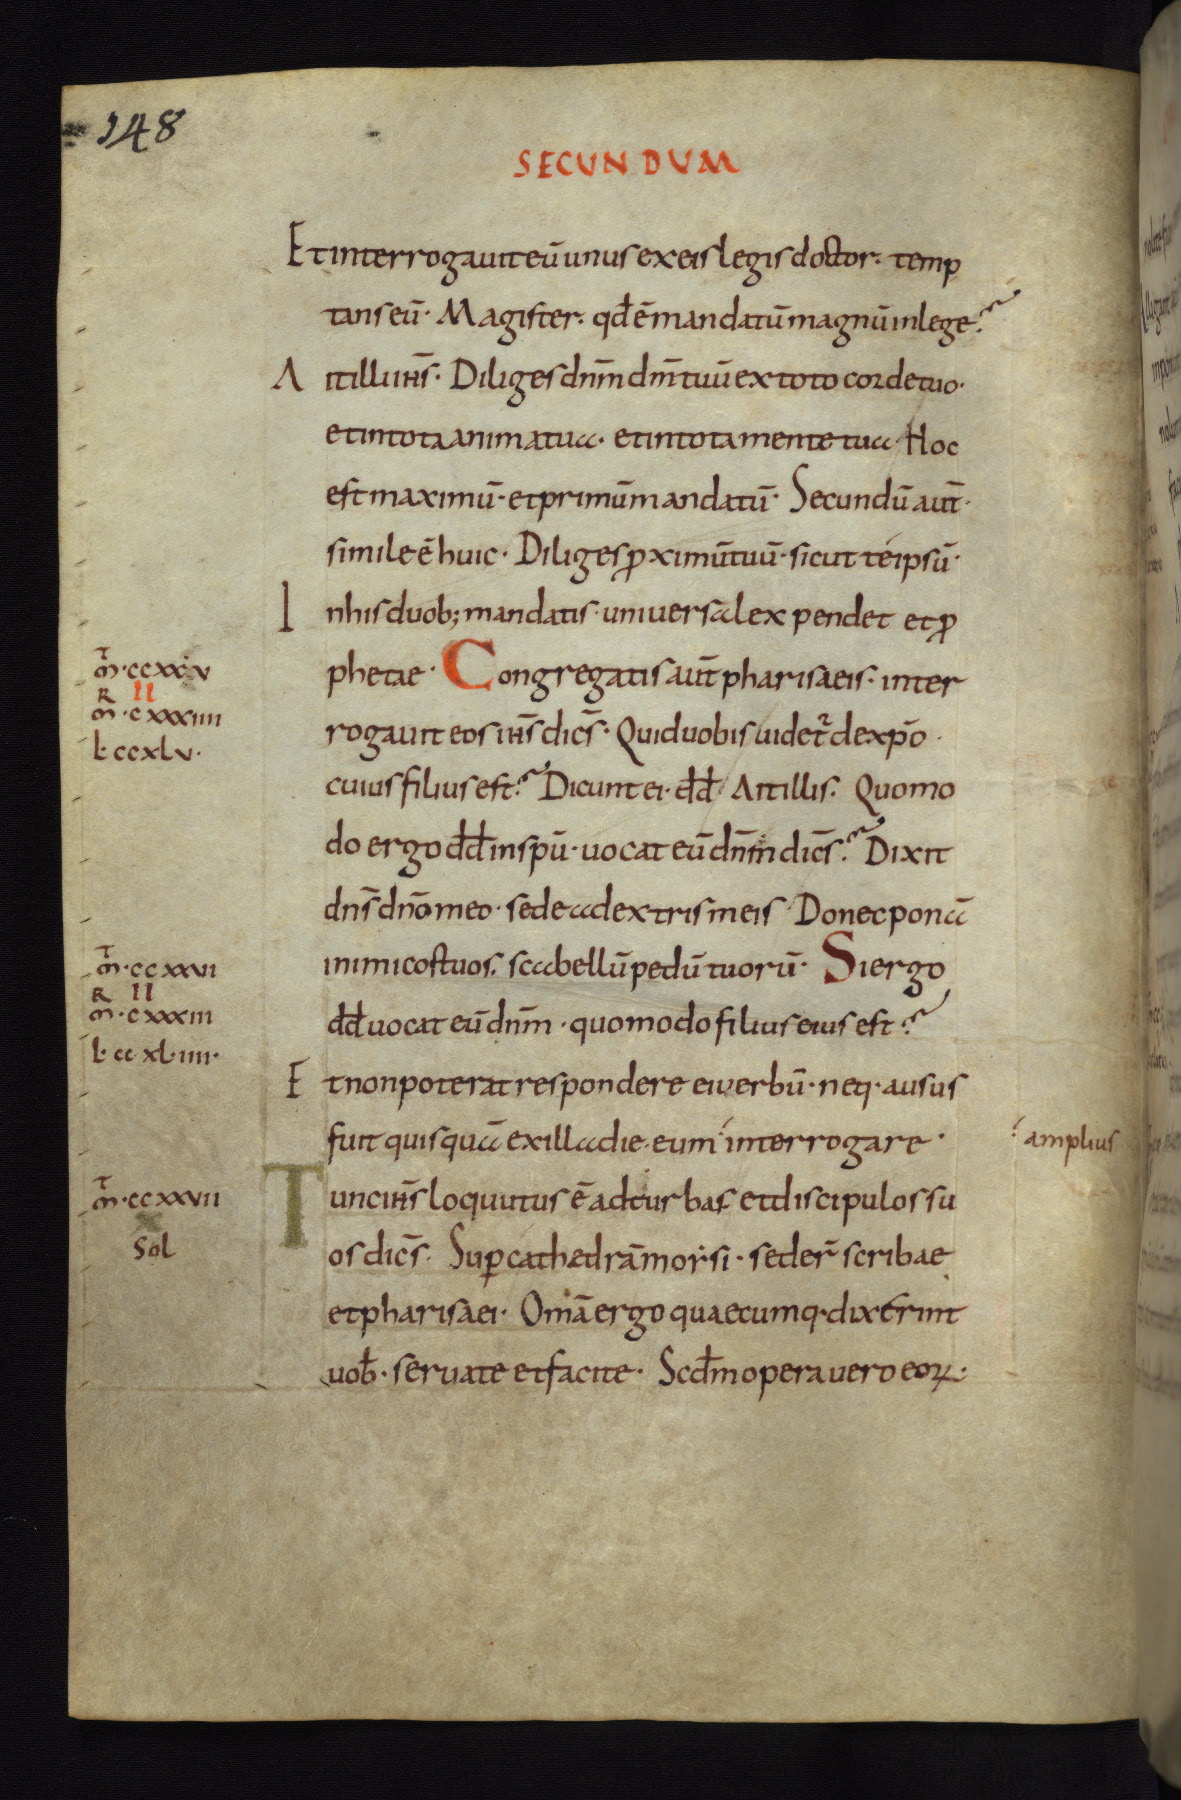 148
SECUNDUM
Et interrogauit eū unus ex eis legis doctor. temp
tans eū. Magister. qđ ē mandatū magnū in lege?
Ait illi ihs̄. Diliges dnm̄ dm̄ tuū ex toto corde tuo.
et in tota anima tua. et in tota mente tua. Hoc
est maximū. et primū mandatū. Secundū aut̄.
simile ē huic. Diliges ꝓximū tuū. sicut teipsū.
In his duob; mandatis. uniuersa lex pendet et ꝓ
phetae. Congregatis aut̄ pharisaeis. inter
rogauit eos ihs̄ dic̄s. Quid uobis uidet᷑ de xp̄o.
cuius filius est? Dicunt ei. dd̄. Ait illis. Quomo
do ergo dd̄ in sp̄u. uocat eū dnm̄ dic̄s? Dixit
dns̄ dnō meo. sede a dextris meis. Donec ponā
inimicos tuos. scabellū pedū tuorū. Si ergo
dd̄ uocat eū dnm̄. quomodo filius eius est?
Et non poterat respondere ei uerbū. neq. ausus
fuit quisquā ex illa die. eum interrogare.
amplius
Tunc ihs̄ locutus ē ad turbas et discipulos su
os dic̄s. Sup̱ cathedrā morsi. seder̄ scribae
et pharisaei. Om̄ā ergo quaecumq. dixerint
uob̄. seruate et facite. Scdm̄ opera uero eoꝝ.
m̄. ccxxv
R II
m̄. cxxxiiii
L. ccxlv.
m̄. ccxxvi
R II
m̄. cxxxiii
L. cc xl. iiii.
m̄. ccxxvii
x
Sol